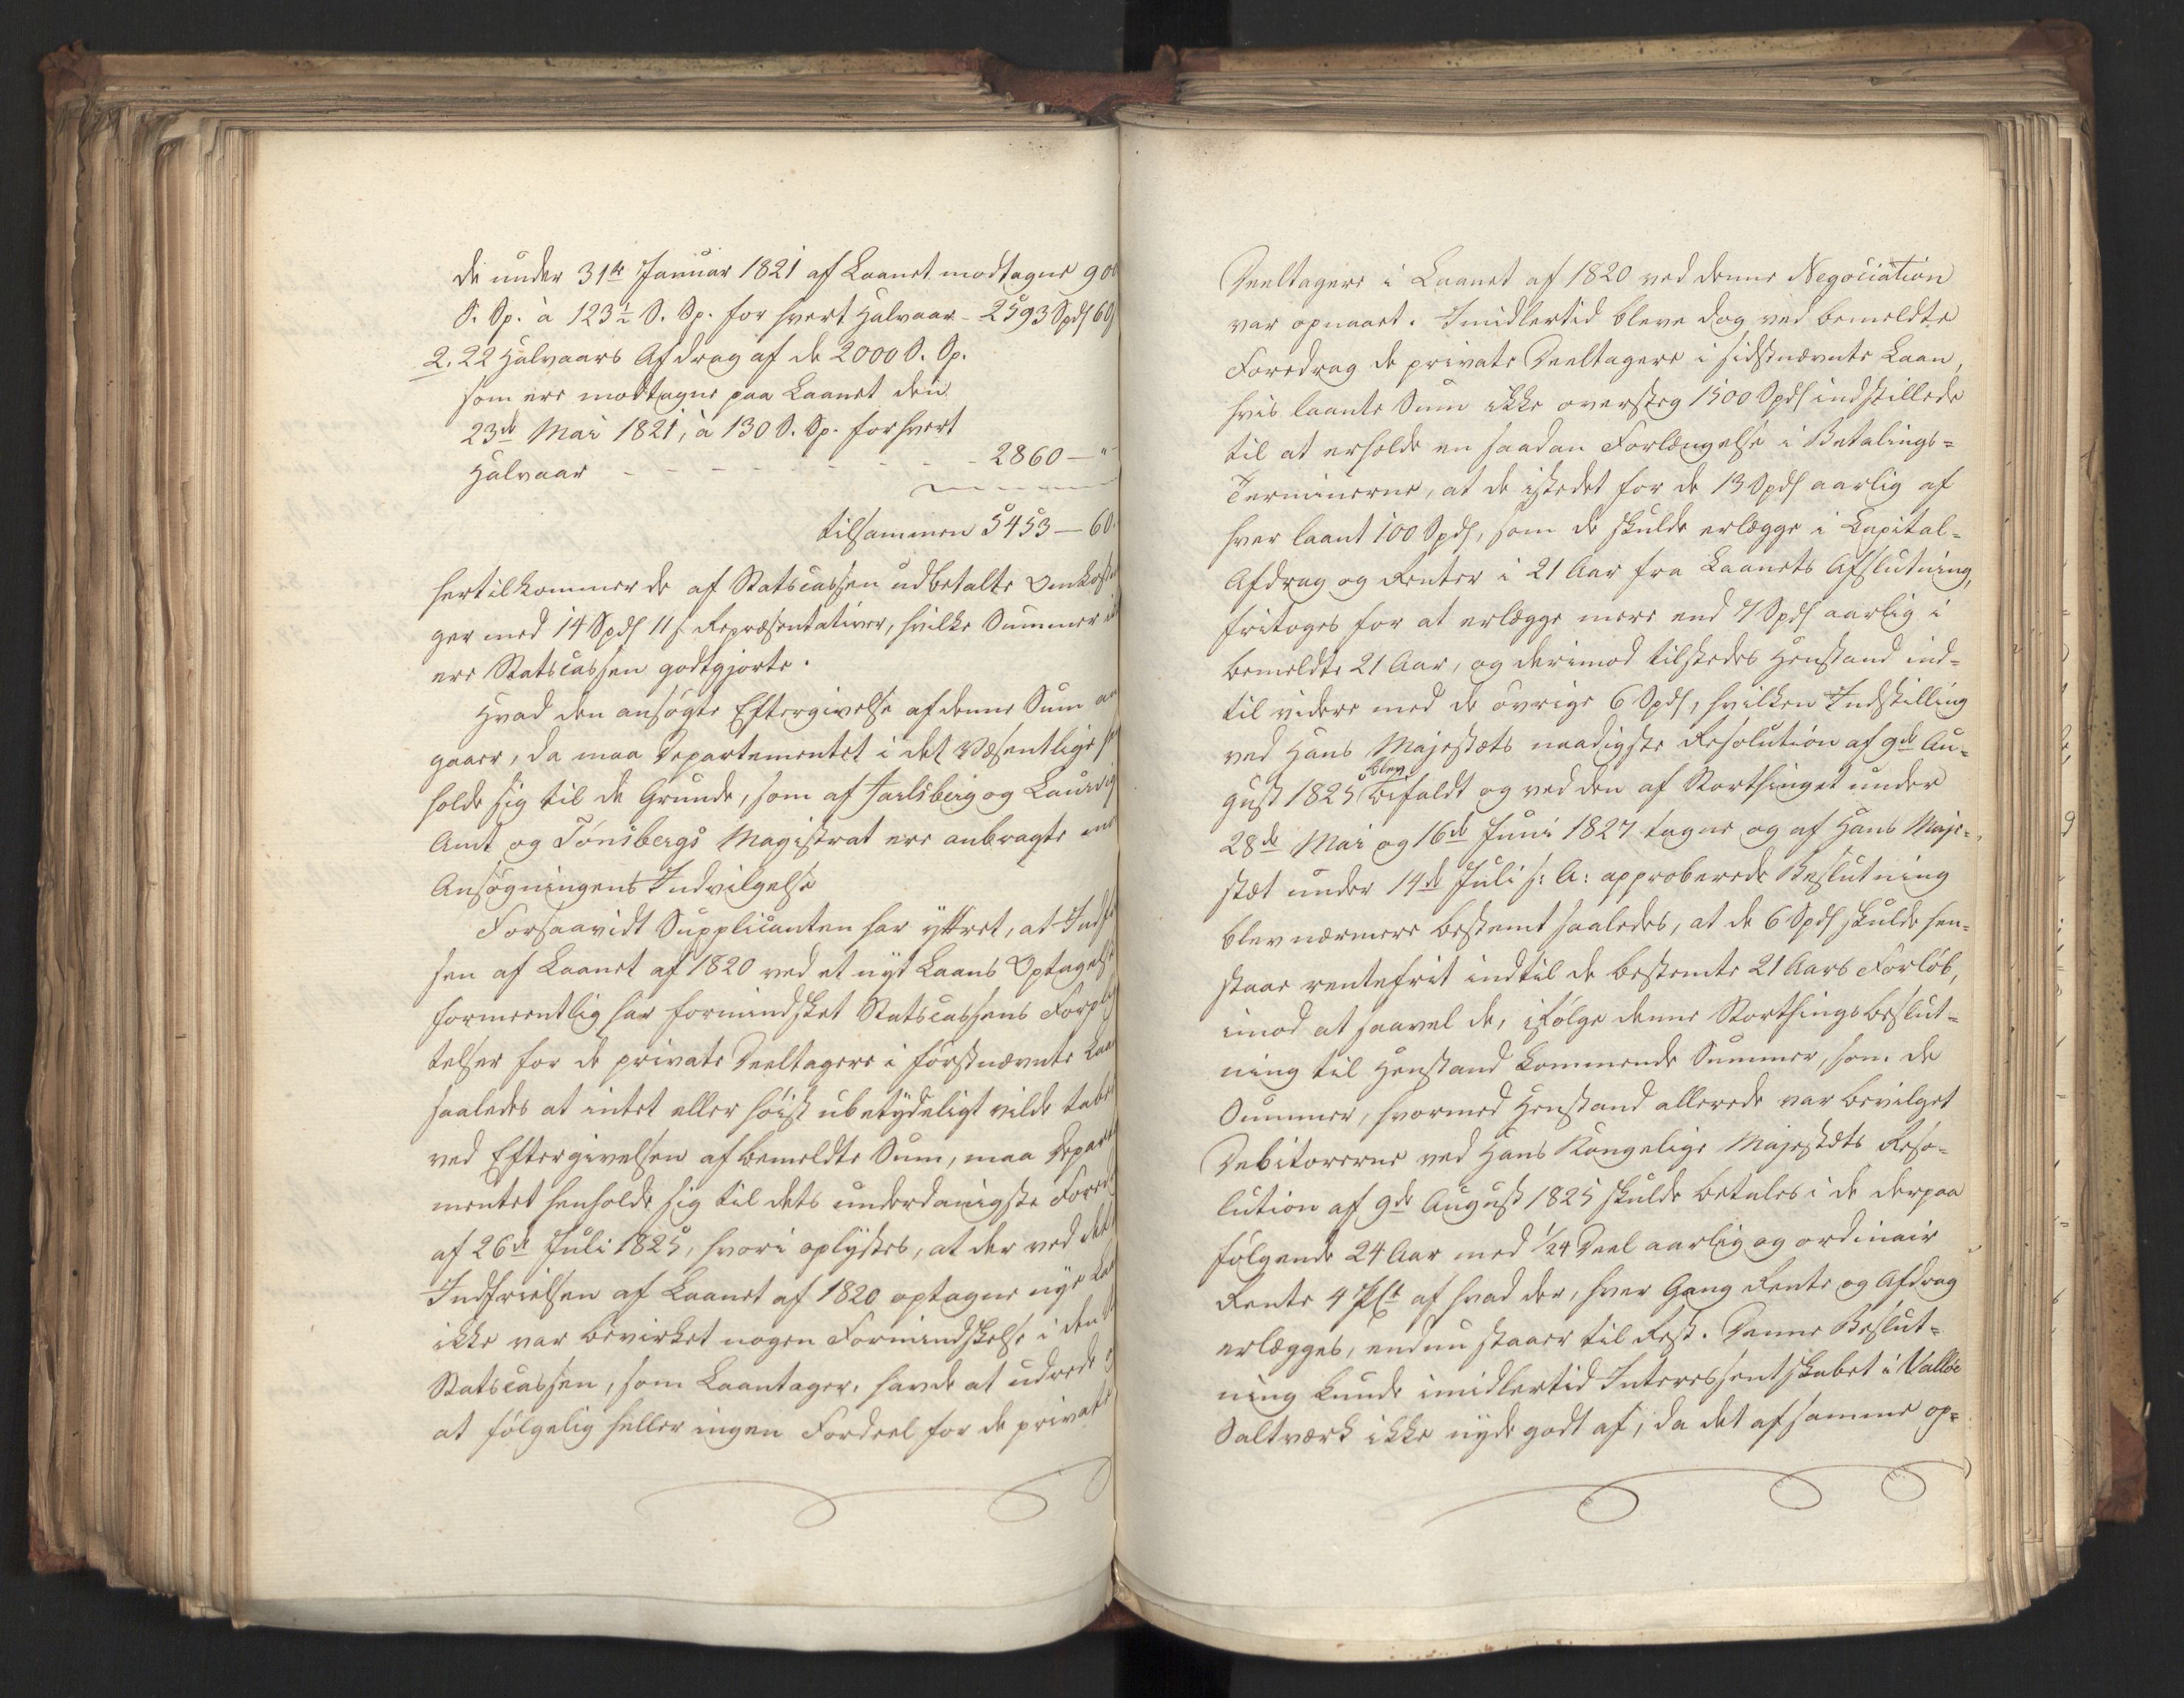 de under 31te Januar 1821 af Laanet modtagne 900
S. Sp. à 123½ S. Sp. for hvert Halvaar - 2593 Spd 60
2, 22 Halvaars Afdrag af de 2000 S. Sp.
som ere modtagne paa Laanet den
23de Mai 1821, à 130 S. Sp. for hvert
Halvaar - - - - - - - - - 2860 — "
tilsammen 5453 — 60
hertil kommer de af Statscassen udbetalte Omkostnin
ger med 14 Spd 11 s. Repræsentativer, hvilke Summer
ere Statscassen godtgjorte.
Hvad den ansøgte Eftergivelse af denne Sum an
gaaer, da maa Departementet i det Væsentlige hen
holde sig til de Grunde, som af Jarlsberg og Laurvig
Amt og Tønsbergs Magistrat ere anbragte mod
Ansøgningens Indvilgelse
Forsaavidt Supplicanten har yttret, at Indfri
sen af Laanet af 1820 ved et nyt Laans Optagelse
formeentlig har formindsket Statscassens Forplig
telser for de private Deeltagere i førstnævnte Laan
saaledes at intet eller høist ubetydeligt vilde tabes
ved Eftergivelsen af bemeldte Sum, maa Departe
mentet henholde sig til dets underdanigste Foredrag
af 26de Juli 1825, hvori oplystes, at der ved det til
Indfrielsen af Laanet af 1820 optagne nye Laan
ikke var bevirket nogen Formindskelse i den
Statscassen, som Laantager, havde at udrede og
at følgelig heller ingen Fordeel for de private
Deeltagere i Laanet af 1820 ved denne Negociation
var opnaaet. Imidlertid bleve dog ved bemeldte
Foredrag de private Deeltagere i sidstnævnte Laan,
hvis laante Sum ikke oversteg 1500 Spd indstillede
til at erholde en saadan Forlængelse i Betalings=
Terminerne, at de istedet for de 13 Spd aarlig af
hver laant 100 Spd, som de skulde erlægge i Capital-
Afdrag og Renter i 21 Aar fra Laanets Afslutning,
fritoges for at erlægge mere end 7 Spd aarlig i
bemeldte 21 Aar, og derimod tilstedes Henstand ind=
til videre med de øvrige 6 Spd, hvilken Indstilling
ved Hans Majestæts naadigste Resolution af 9de Au=
gust 1825 blev bifaldt og ved den af Storthinget under
28de Mai og 16de Juni 1827 tagne og af Hans Maje=
stæt under 14de Juli s: A: approberede Beslutning
blev nærmere bestemt saaledes, at de 6 Spd skulde hen=
staae rentefrit indtil de bestemte 21 Aars Forløb,
imod at saavel de, ifølge denne Storthingsbeslut=
ning til Henstand kommende Summer, som de
Summer, hvormed Henstand allerede var bevilget
Debitorerne ved Hans Kongelige Majestæts Reso=
lution af 9de August 1825 skulde betales i de derpaa
følgende 24 Aar med 1/24 Deel aarlig og ordinair
Rente 4 pCt af hvad der, hver Gang Rente og Afdrag
erlægges, endnu staaer til Rest. Denne Beslut=
ning kunde imidlertid Interessentskabet i Valløe
Saltværk ikke nyde godt af, da det af samme op=